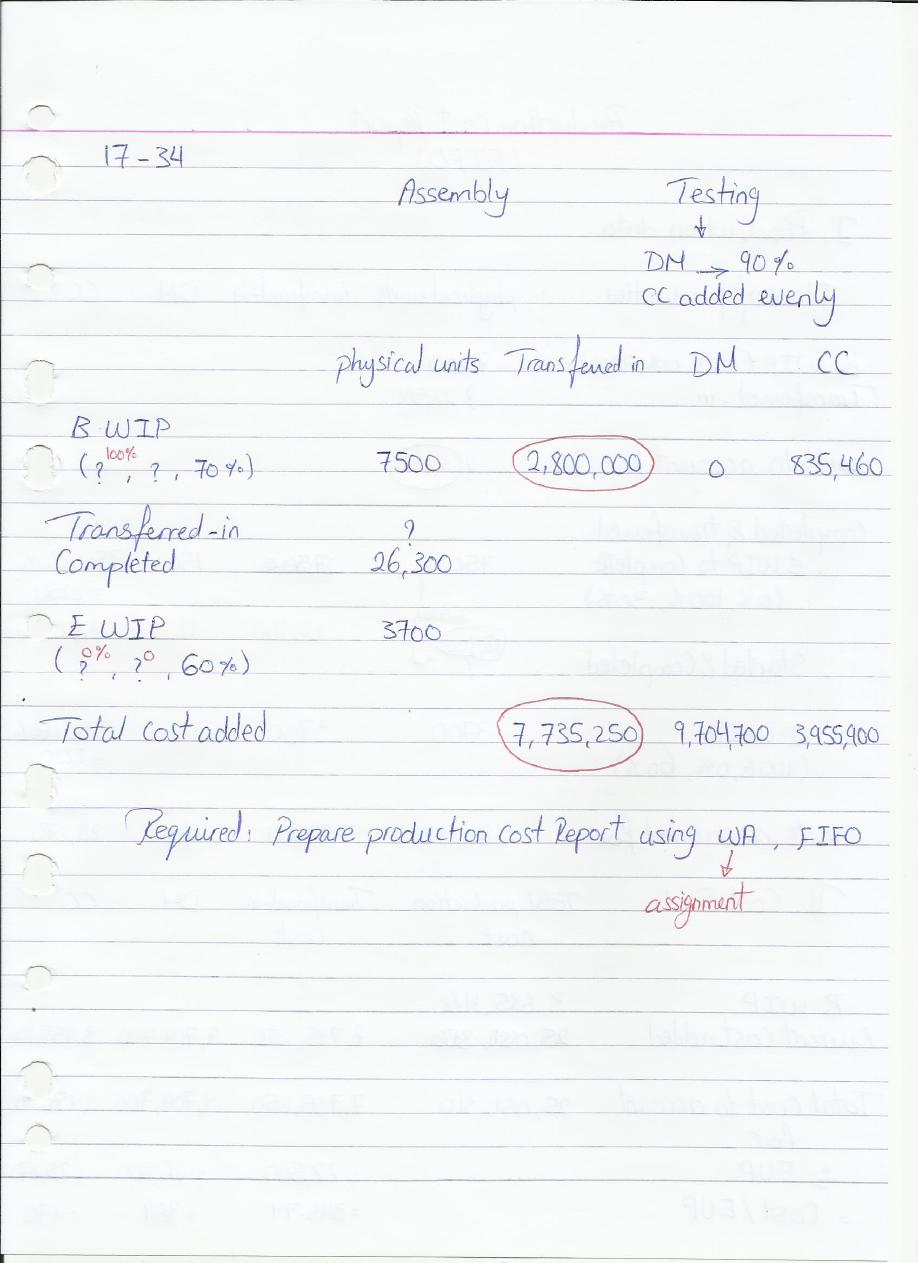 17-34
Assembly Testing
↓
DM → 90%
CC added evenly
physical units Transferred in DM CC
B WIP
100%
(?, ?, 70%) 7500 2,800,000 0 835,460
Transferred-in ?
Completed 26,300
E WIP 3700
0% 0
(?, ?, 60%)
Total cost added 7,735,250 9,704,700 3,955,900
Required: Prepare production Cost Report using WA, FIFO
↓
assignment